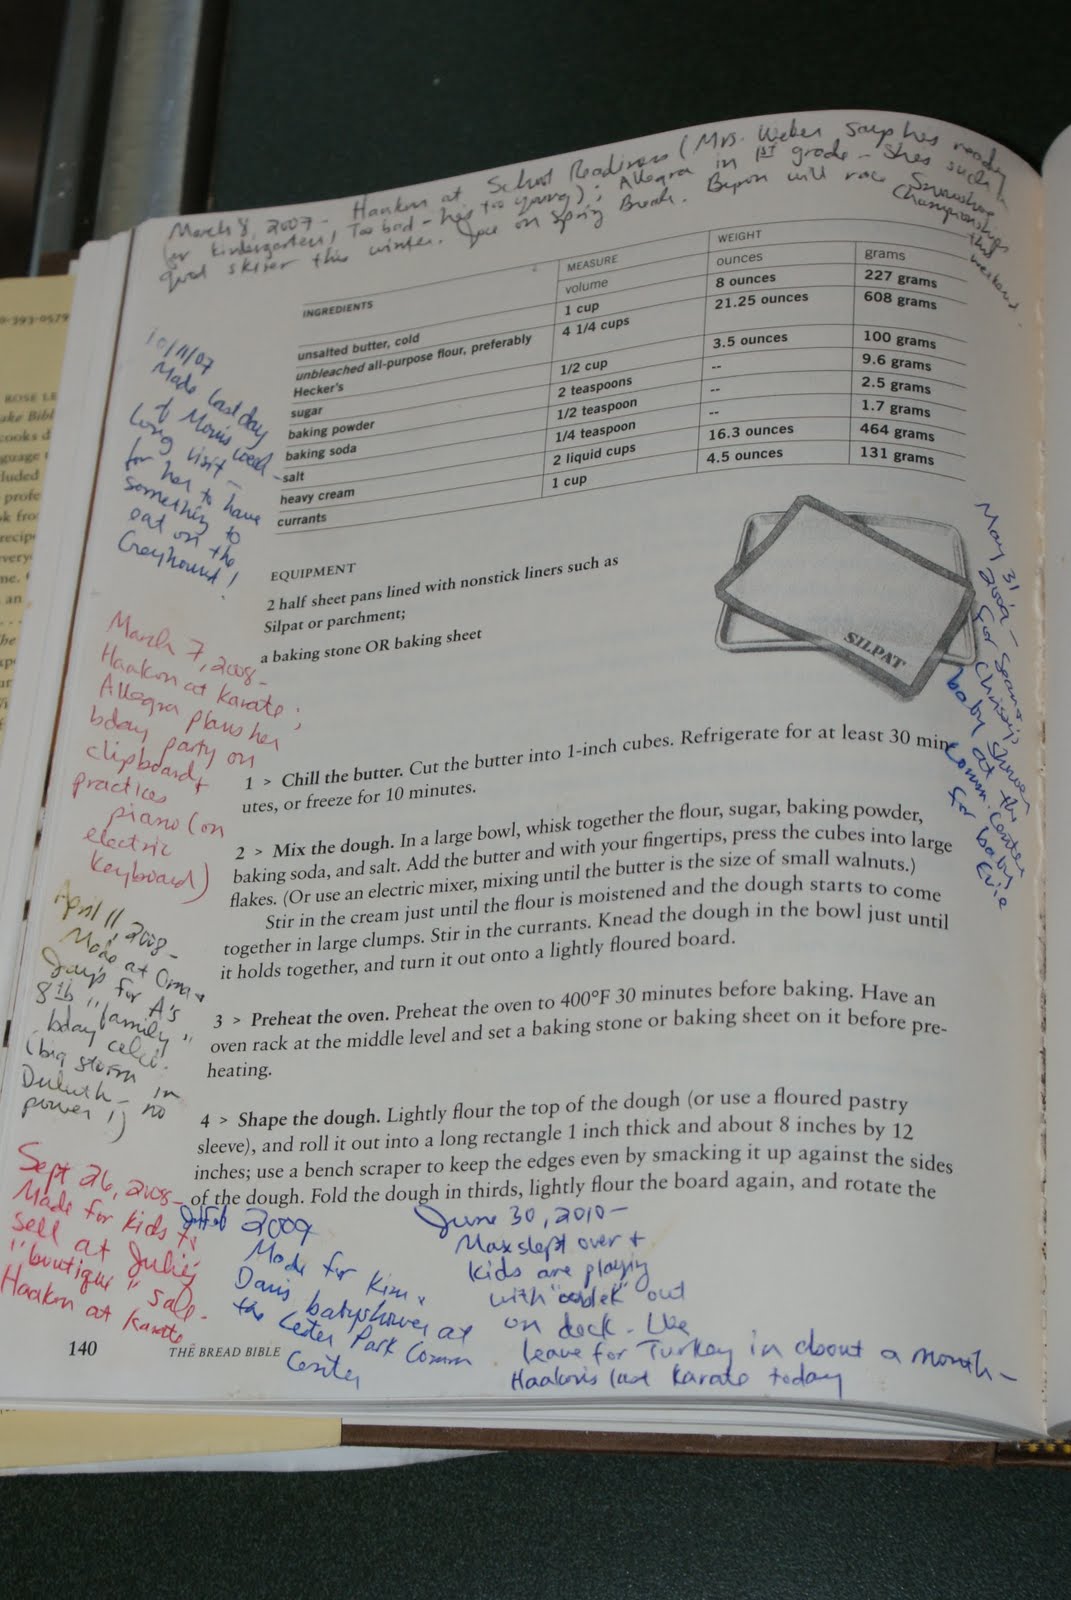 March 8, 2007 - Haakon at School Readiness (Mrs. Weber says hes ready
for kindergarten, Too bad - hes too young); Allegra in 1ST grade - Shes such
good skiier this winter. on Spring Break. Byron will race Snowshoe
Championships
this
weekend
INGREDIENTS MEASURE WEIGHT
volume ounces grams
unsalted butter, cold 1 cup 8 ounces 227 grams
unbleached all-purpose flour, preferably 4 1/4 cups 21.25 ounces 608 grams
Hecker's
sugar 1/2 cup 3.5 ounces 100 grams
baking powder 2 teaspoons -- 9.6 grams
baking soda 1/2 teaspoon -- 2.5 grams
salt 1/4 teaspoon -- 1.7 grams
heavy cream 2 liquid cups 16.3 ounces 464 grams
currants 1 cup 4.5 ounces 131 grams
10/11/07
Made last day
of Mom's week
long visit -
for her to have
something to
eat on the
Greyhound!
EQUIPMENT
2 half sheet pans lined with nonstick liners such as
Silpat or parchment;
a baking stone OR baking sheet
SILPAT
May 31,
2009 -
for Sean &
Chrissy's
baby shower
at the
Comm. Center
for baby
Evie
March 7, 2008 -
Haakon at karate;
Allegra plans her
bday party on
clipboard +
practices
piano (on
electric
keyboard)
1 > Chill the butter. Cut the butter into 1-inch cubes. Refrigerate for at least 30 min-
utes, or freeze for 10 minutes.
2 > Mix the dough. In a large bowl, whisk together the flour, sugar, baking powder,
baking soda, and salt. Add the butter and with your fingertips, press the cubes into large
flakes. (Or use an electric mixer, mixing until the butter is the size of small walnuts.)
Stir in the cream just until the flour is moistened and the dough starts to come
together in large clumps. Stir in the currants. Knead the dough in the bowl just until
it holds together, and turn it out onto a lightly floured board.
April 11, 2008 -
Made at Oma +
for A's
8th "family"
bday celeb.
(big storm in
Duluth - no
power!)
3 > Preheat the oven. Preheat the oven to 400°F 30 minutes before baking. Have an
oven rack at the middle level and set a baking stone or baking sheet on it before pre-
heating.
4 > Shape the dough. Lightly flour the top of the dough (or use a floured pastry
sleeve), and roll it out into a long rectangle 1 inch thick and about 8 inches by 12
inches; use a bench scraper to keep the edges even by smacking it up against the sides
of the dough. Fold the dough in thirds, lightly flour the board again, and rotate the
Sept 26, 2008 -
Made for kids to
sell at Julie's
"boutique" sale.
Haakon at karate
Feb 2009
Made for Kim +
Dan's babyshower at
the Lester Park Comm
Center
June 30, 2010 -
Max slept over +
kids are playing
with out
on deck. We
leave for Turkey in about a month -
Haakon's last karate today
140 THE BREAD BIBLE
0-393-0579
ROSE LE
ake Bibl
cooks d